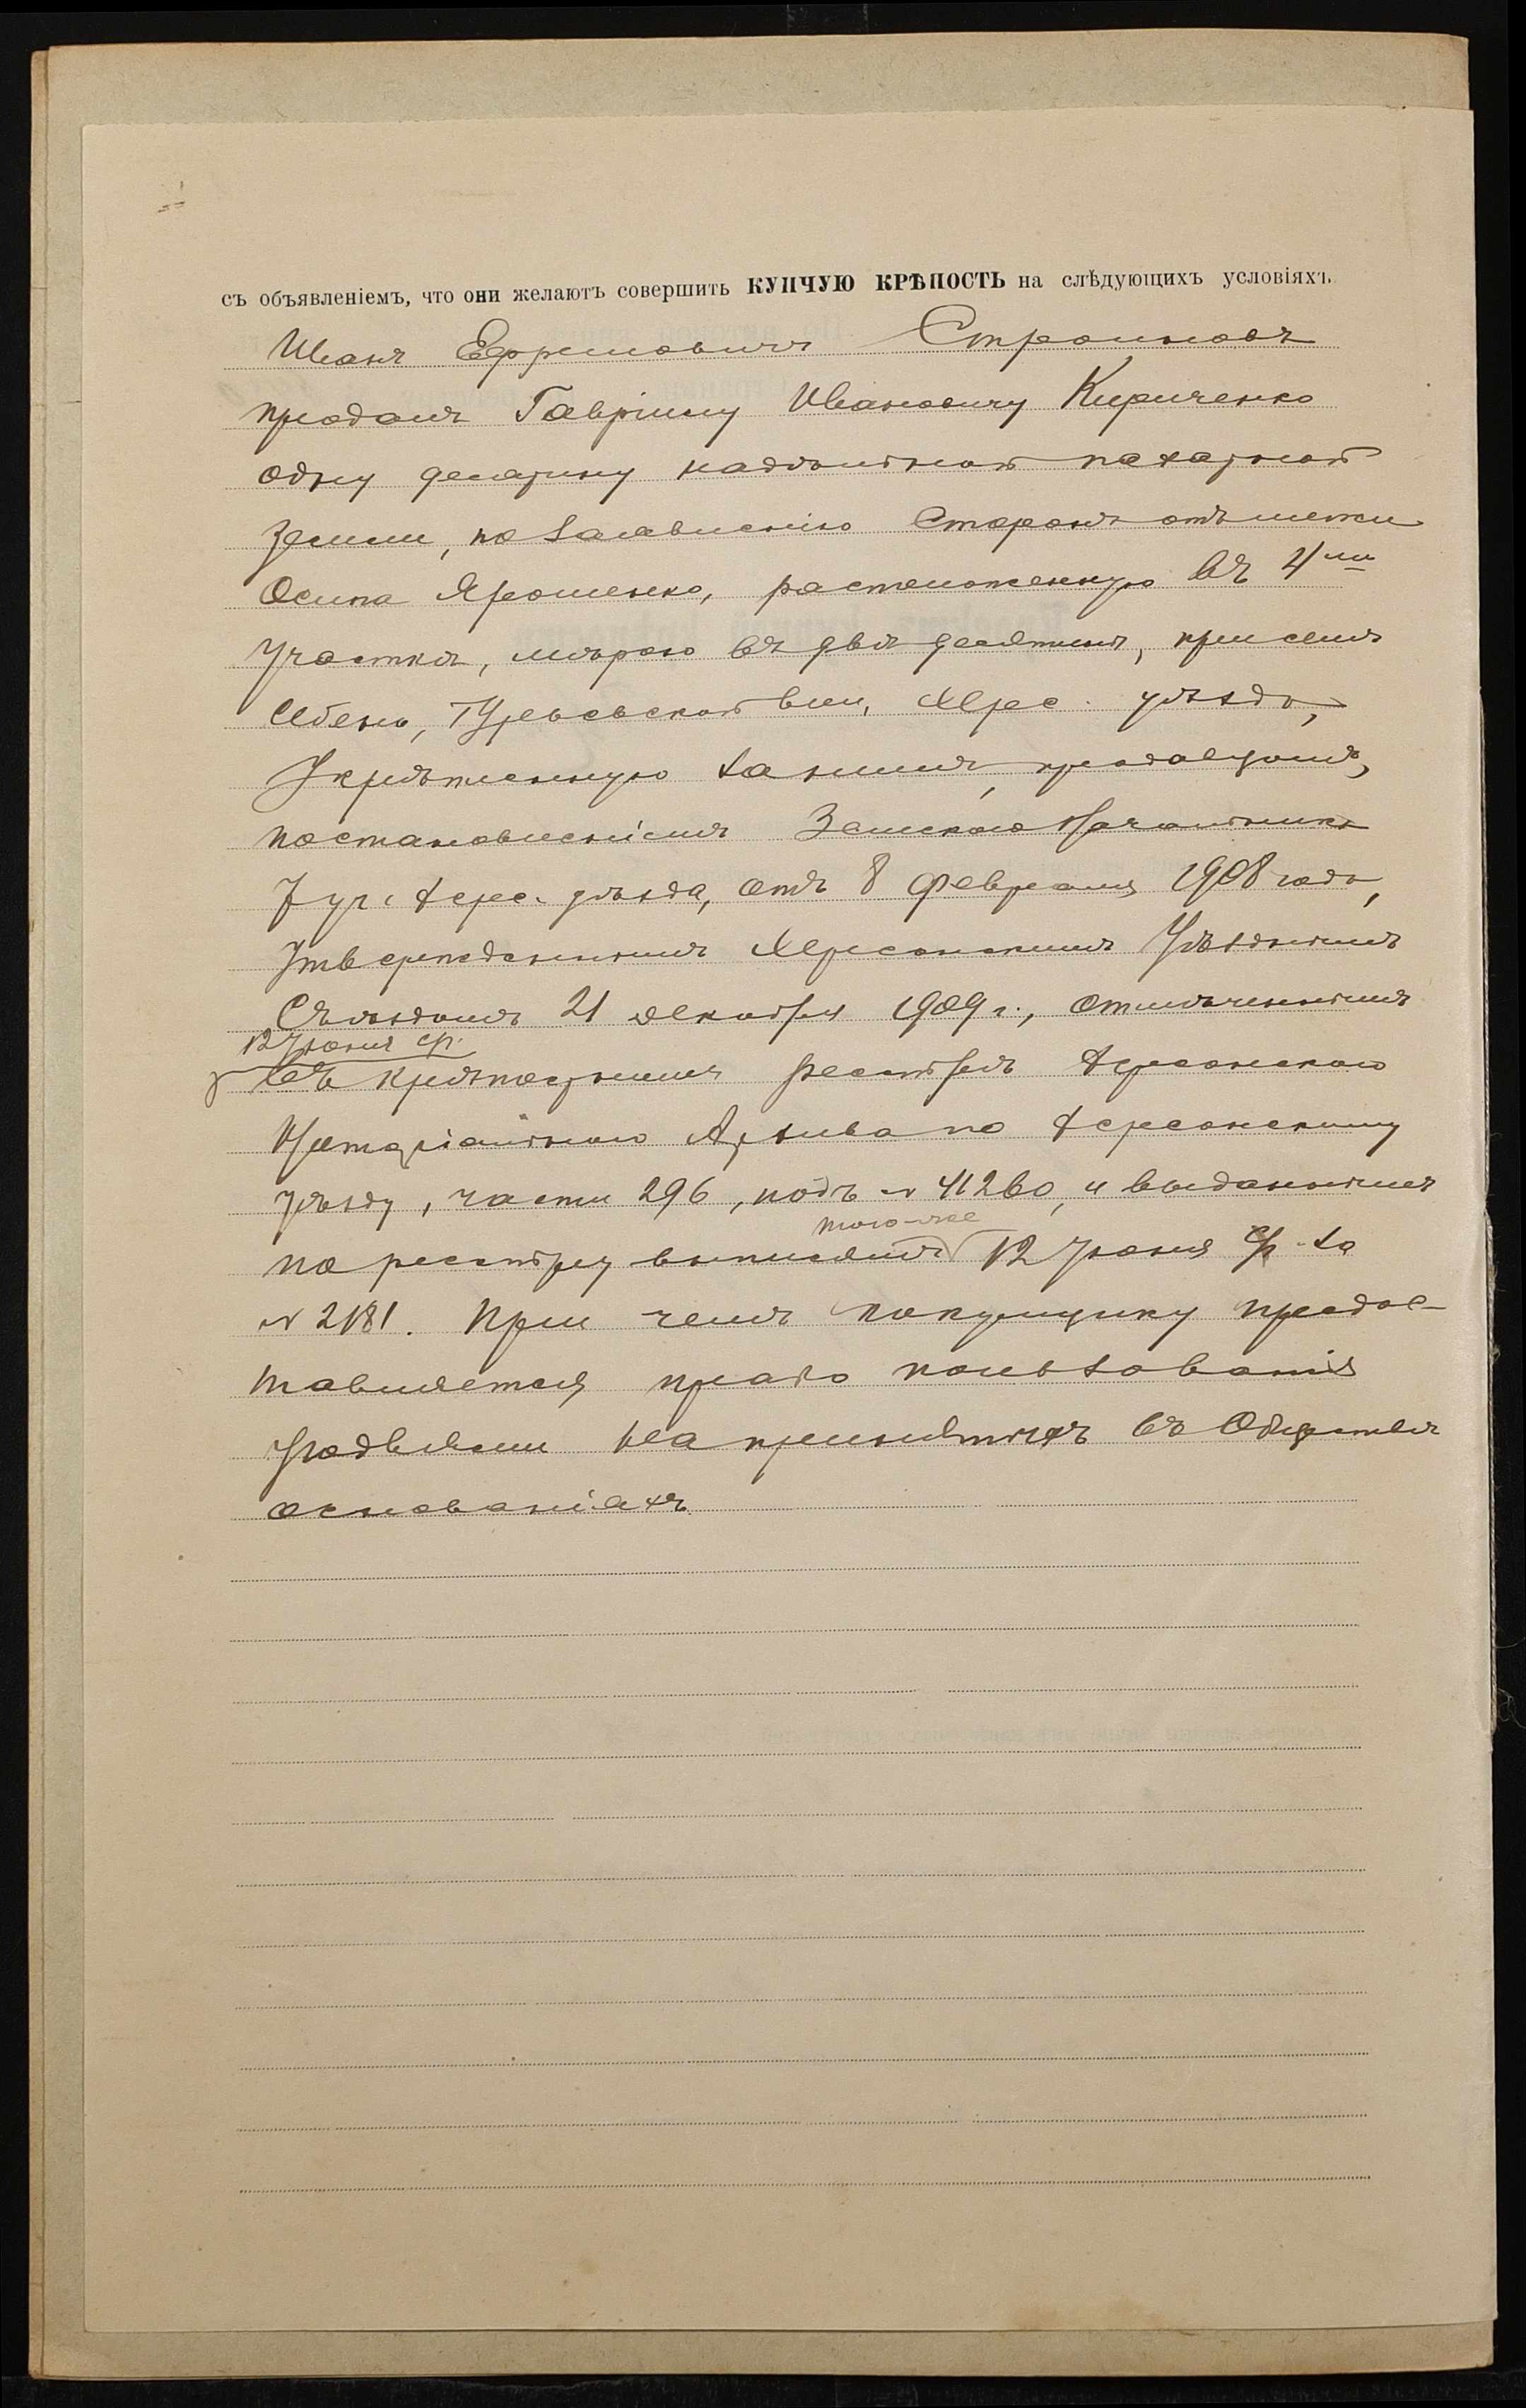 съ объявленіемъ, что они желаютъ совершить КУПЧУЮ КРѢПОСТЬ на слѣдующихъ условіяхъ.
Иванъ Ефремовичъ
продалъ Гавріилу Ивановичу Кириченко
одну десятину надѣльной пахатной
земли, по заявленію Сторонъ отъ межи
Осипа Ярошенко, расположенную въ 4мъ
участкѣ, мѣрою въ двѣ десятины, при селѣ
вол., Херс. уѣзда,
укрѣпленную за нимъ, продавцомъ,
постановленіемъ Земскаго Начальника
7 уч. Херс. уѣзда, отъ 8 февраля 1908 года,
утвержденнымъ Херсонскимъ Уѣзднымъ
Съѣздомъ 21 декабря 1909 г., отмѣченнымъ
12 Іюня с/г.
въ крѣпостномъ реестрѣ Херсонскаго
Нотаріальнаго Архива по Херсонскому
уѣзду, части 296, подъ № 41260, и выданнымъ
того-же
по реестру выписямъ 12 Іюня с/г за
№ 2181. При чемъ покупщику предос-
тавляется право пользованія
усадьбами на принятыхъ въ Обществѣ
основаніяхъ